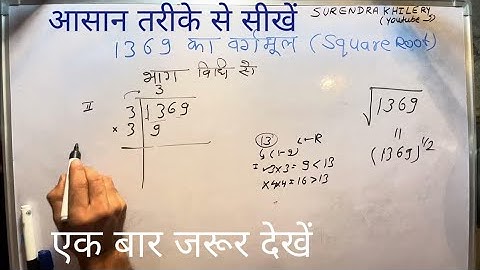 आसान तरीके से सीखें
SURENDRA KHILERY
(Youtube →)
1369 का वर्गमूल (Square Root)
भाग विधि से
3
II 3 1369
× 3 9
√1369
॥
(1369)^1/2
13 L←R
(1-9)
I ✓3×3=9<13
×4×4=16>13
एक बार जरूर देखें